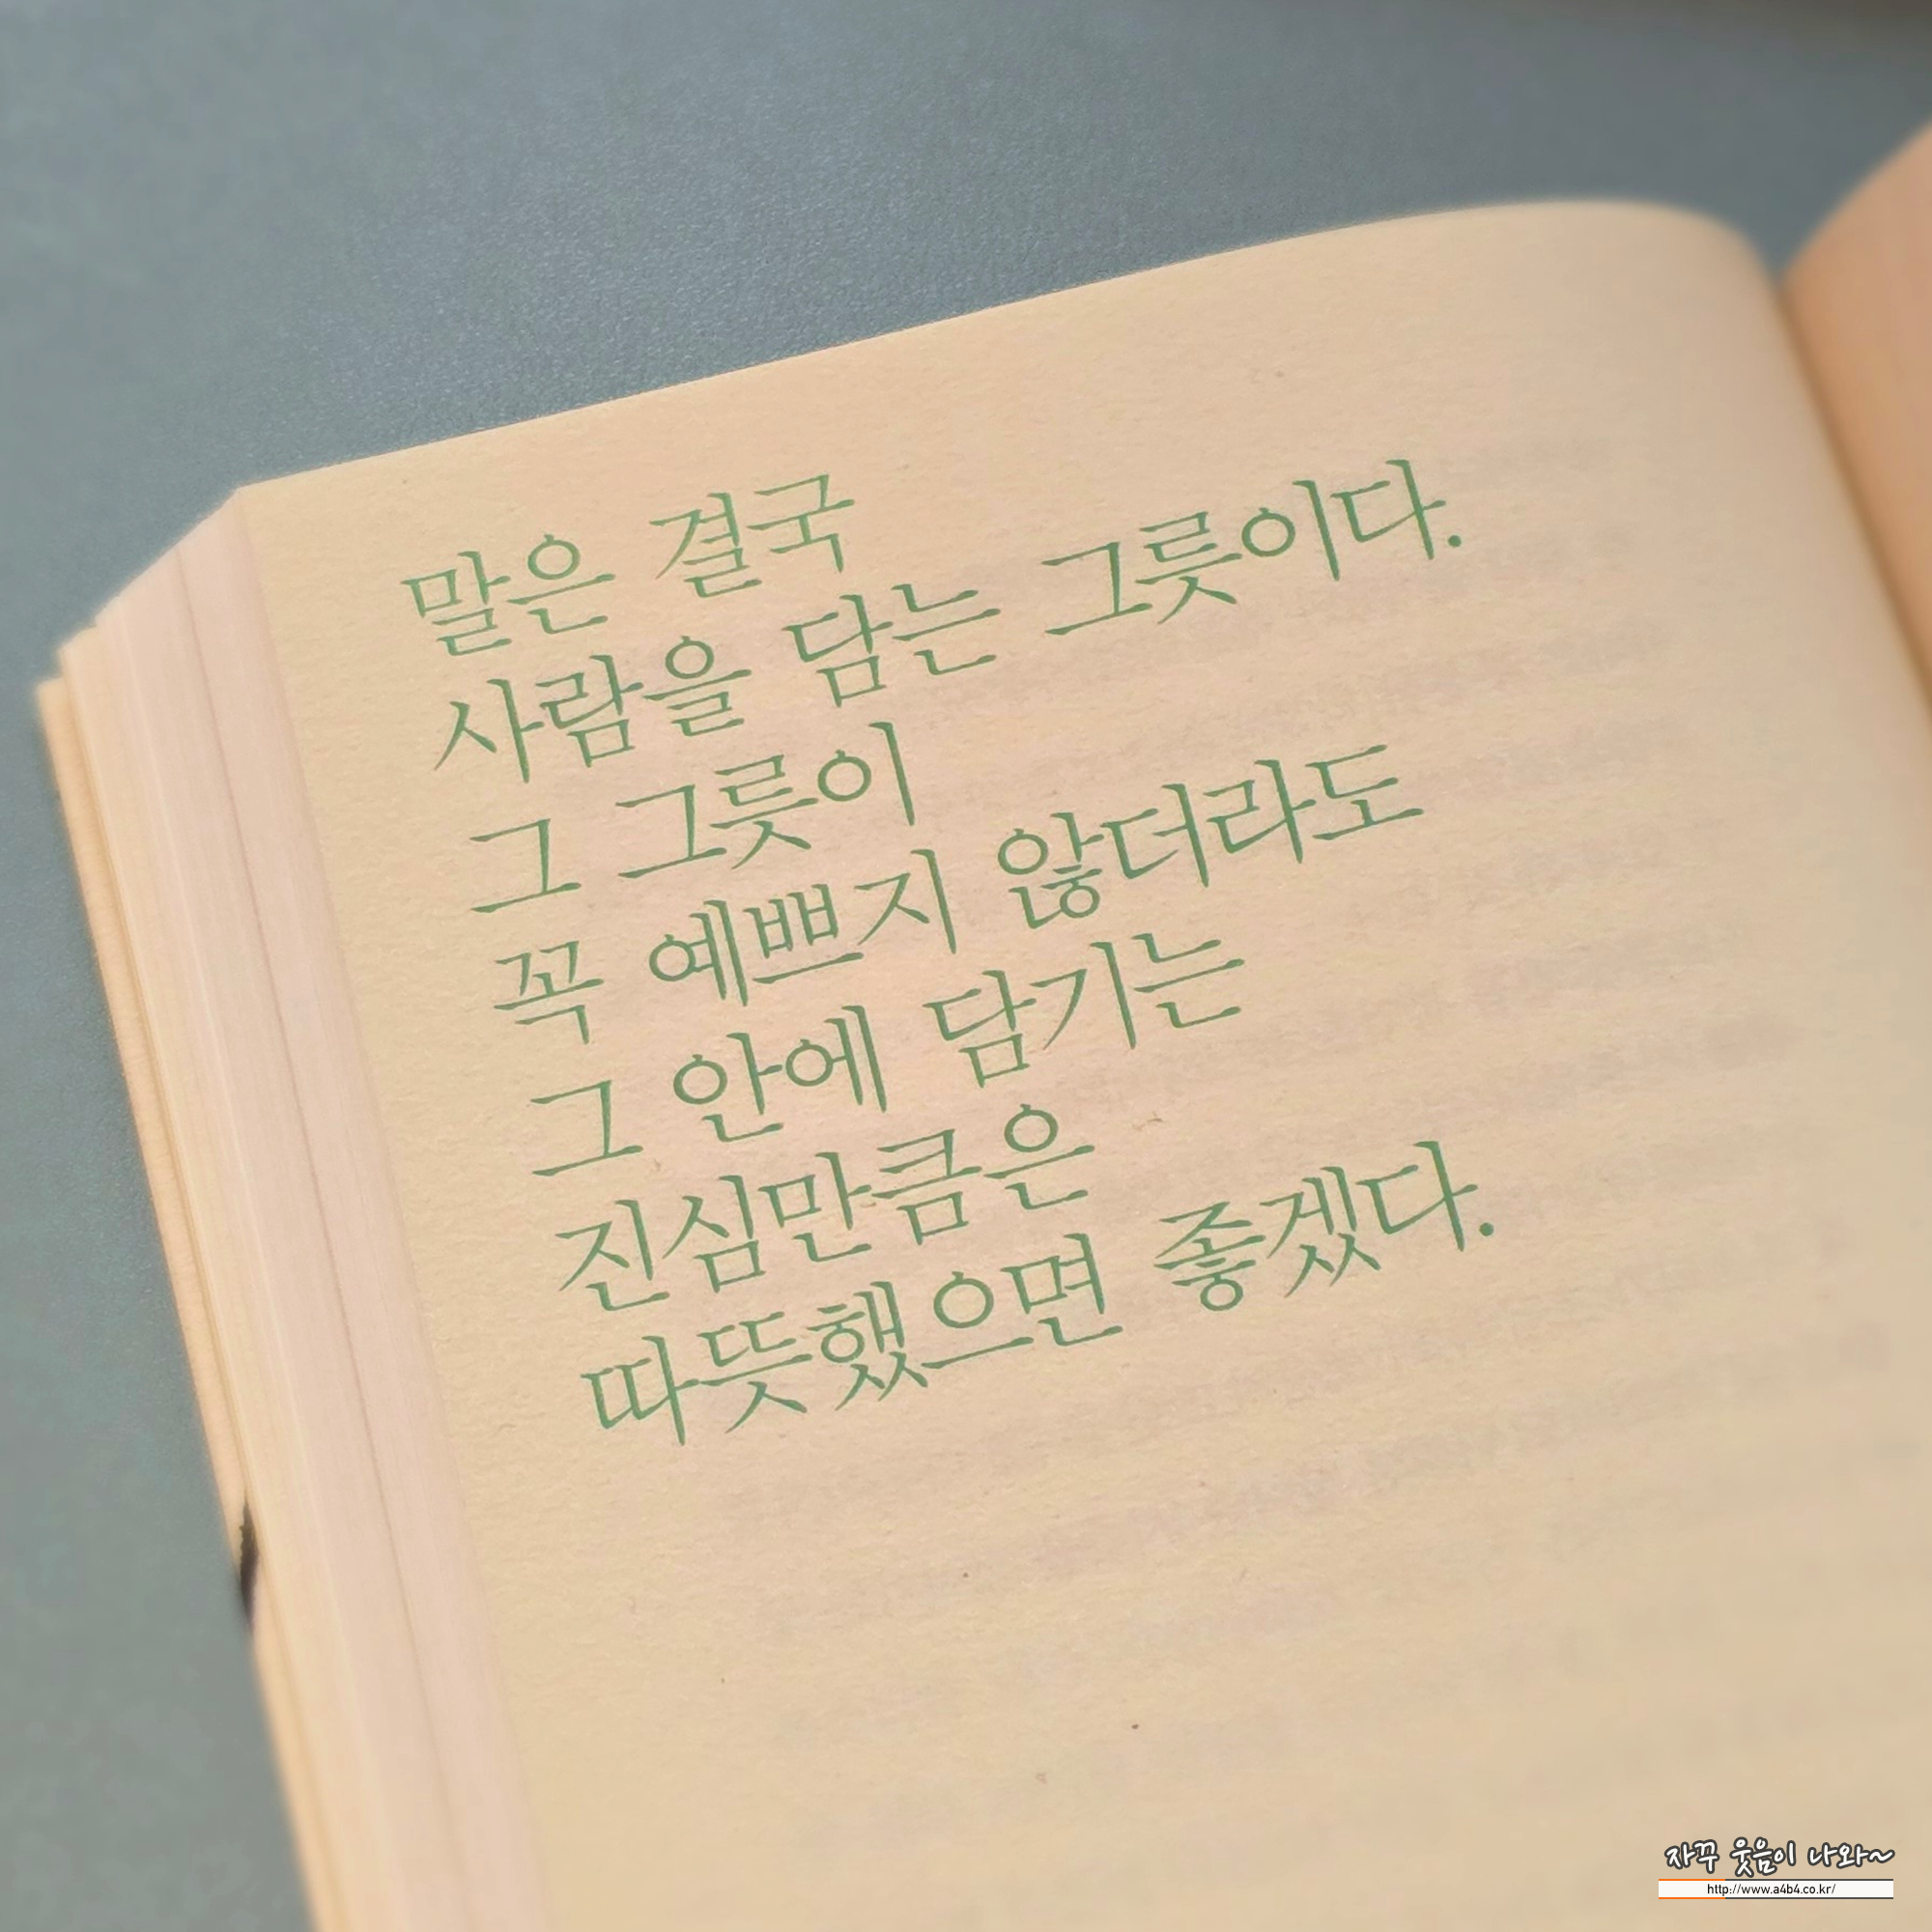 말은 결국
사람을 담는 그릇이다.
그 그릇이
꼭 예쁘지 않더라도
그 안에 담기는
진심만큼은
따뜻했으면 좋겠다.
자꾸 웃음이 나와~
http://www.a4b4.co.kr/